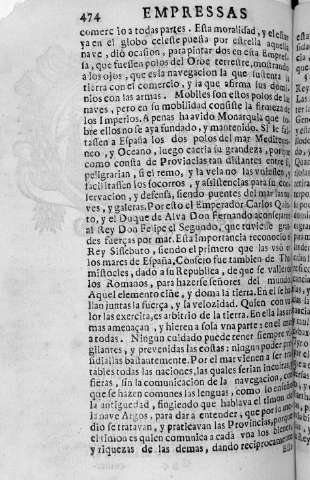 474 EMPRESSAS
comercio a todas partes. Esta moralidad, y el estar
ya en el globo celeste puesta por estrella aquella
nave, dió ocasion, para pintar dos en esta Empre-
sa, que fuessen polos del Orbe terrestre, mostrando
a los ojos, que es la navegacion la que sustenta la
tierra con el comercio, y la que afirma sus domi-
nios con las armas. Mobiles son estos polos de las
naves, pero en su mobilidad consiste la firmeza de
los Imperios. A penas ha avido Monarquia que so-
bre ellos no se aya fundado, y mantenido. Si le fal-
tassen a España los dos polos del mar Mediterra-
neo, y Oceano, luego caeria su grandeza, porque
como consta de Provincias tan distantes entre si,
peligrarian, si el remo, y la vela no las uniessen, y
facilitassen los socorros, y assistencias para su con-
servacion, y defensa, siendo puentes del mar las na-
ves, y galeras. Por esto el Emperador Carlos Quin-
to, y el Duque de Alva Don Fernando aconsejaron
al Rey Don Felipe el Segundo, que tuviesse gran-
des fuerças por mar. Esta importancia reconociò el
Rey Sisebuto, siendo el primero que las usò en
los mares de España, Consejo fue tambien de The-
mistocles, dado a su Republica, de que se valieron
los Romanos, para hazerse señores del mundo.
Aquel elemento ciñe, y doma la tierra. En el se ha-
llan juntas la fuerça, y la velozidad. Quien con va-
lor las exercita, es arbitrio de la tierra. En ella las ar-
mas amenaçan, y hieren a sola vna parte: en el mar
a todas. Ningun cuidado puede tener siempre vi-
gilantes, y prevenidas las costas: ningun poder pre-
sidiallas bastantemente. Por el mar vienen a ser tra-
tables todas las naciones, las quales serian incultas, y
fieras, sin la comunicacion de la navegacion, con
que se hazen comunes las lenguas, como lo enseñò
la antiguedad, fingiendo que hablava el timon de
la nave Argos, para dar a entender, que por su me-
dio se tratavan, y praticavan las Provincias, porque
el timon es quien comunica a cada vna los bienes
y riquezas de las demas, dando reciprocamente